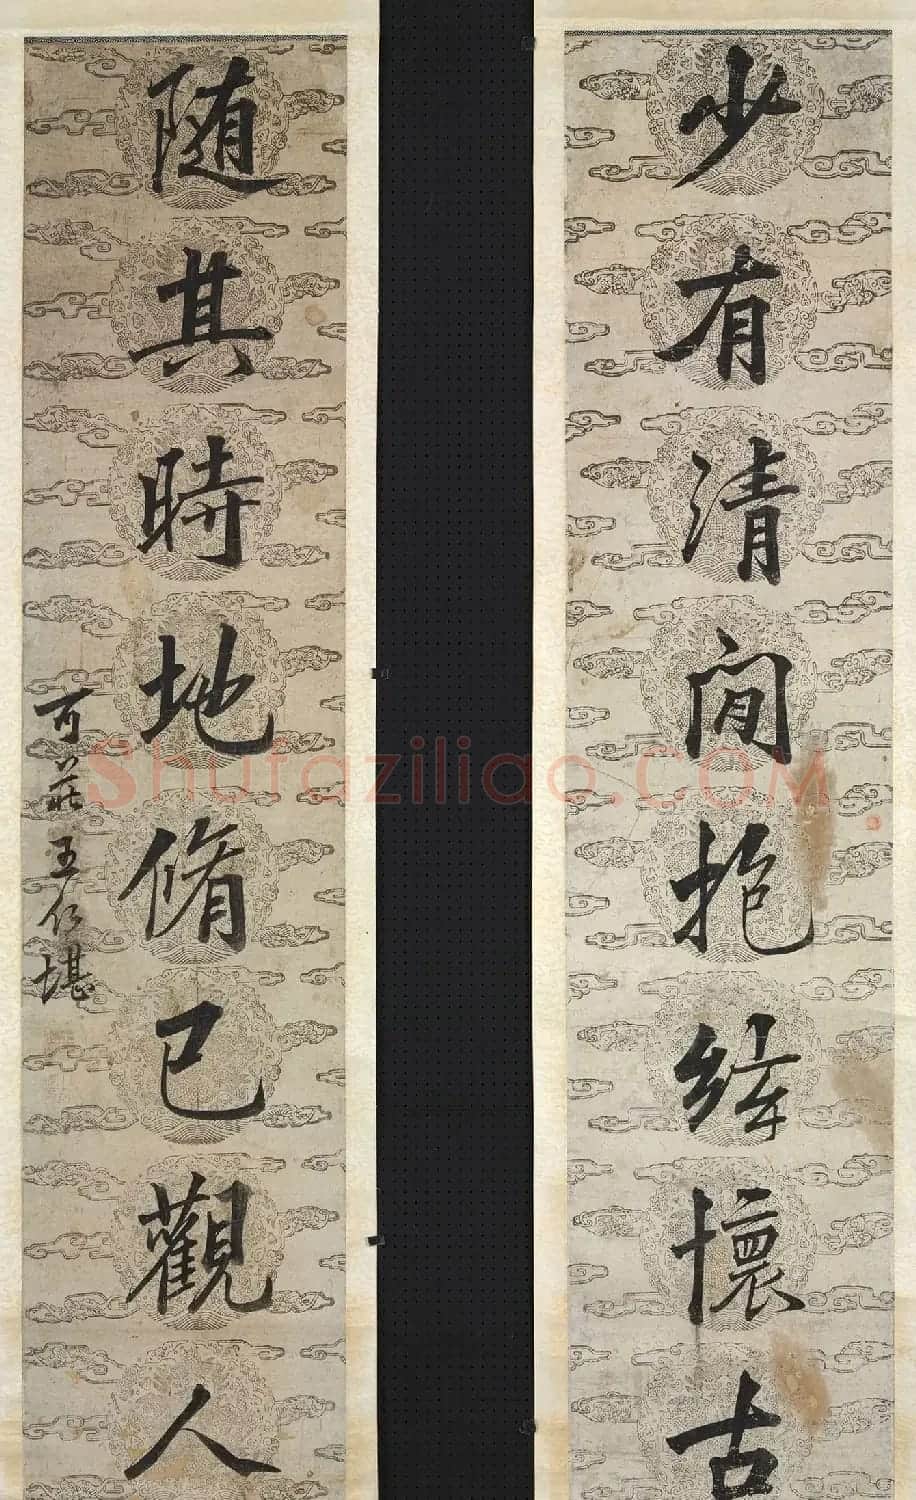 少有清閒抱絃懷古
隨其時地脩己觀人
可莊王仁堪
Shufaziliao.COM